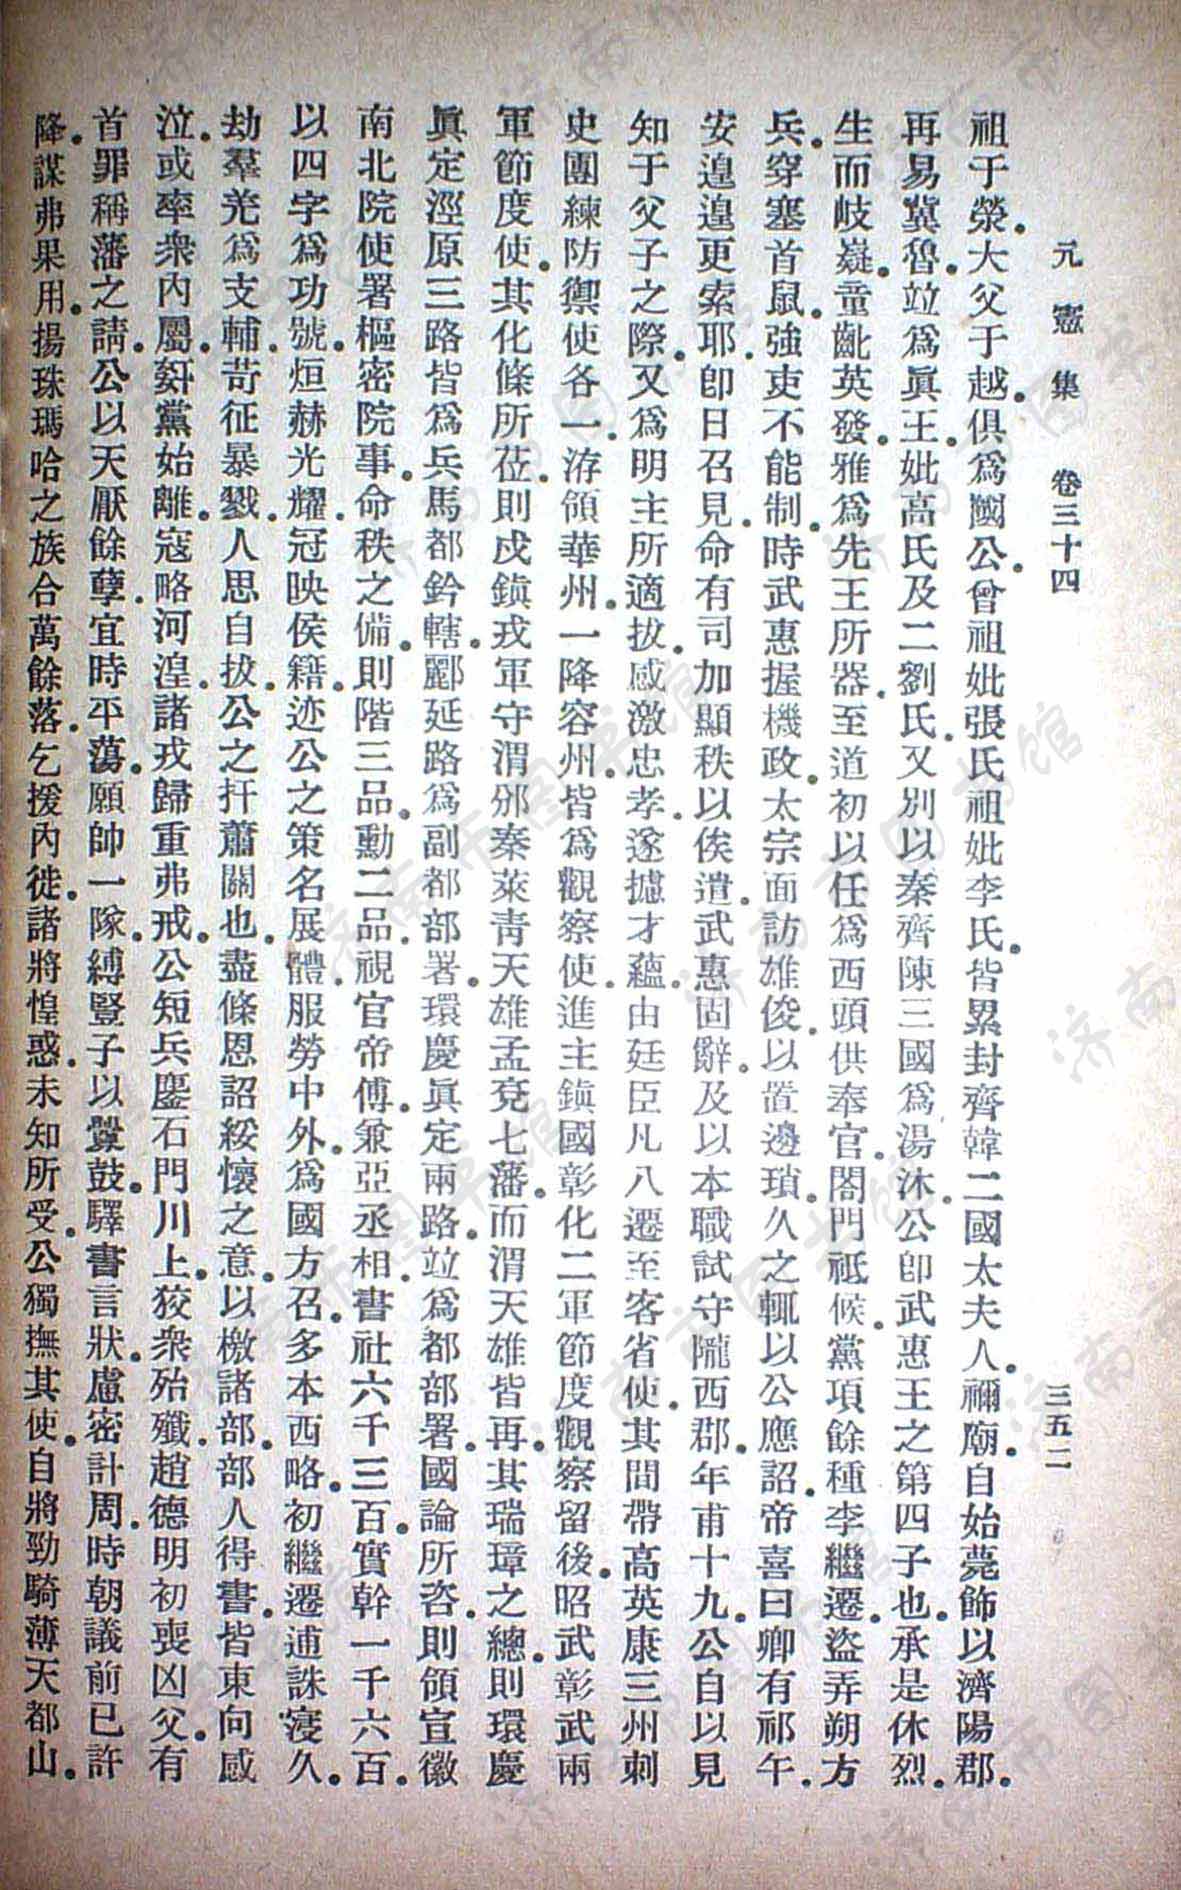 元憲集 卷三十四 三五二
祖于榮。大父于越。俱爲國公。曾祖妣張氏祖妣李氏。皆累封齊韓二國太夫人。禰廟。自始薨飾以濟陽郡。
再易冀魯。竝爲眞王。妣高氏及二劉氏。又別以秦齊陳三國爲湯沐。公卽武惠王之第四子也。承是休烈。
生而岐嶷。童齔英發。雅爲先王所器。至道初以任爲西頭供奉官。閤門祗候。黨項餘種李繼遷。盜弄朔方
兵。穿塞首鼠。強吏不能制。時武惠握機政。太宗面訪雄俊。以置邊瑣。久之輒以公應詔。帝喜曰卿有祁午。
安遑遑更索耶。卽日召見。命有司加顯秩以俟遣。武惠固辭。及以本職試守隴西郡。年甫十九。公自以見
知于父子之際。又爲明主所適拔。感激忠孝。遂攄才蘊。由廷臣凡八遷至客省使。其間帶高英康三州刺
史團練防禦使各一。洊領華州。一降容州。皆爲觀察使。進主鎭國彰化二軍節度觀察留後。昭武彰武兩
軍節度使。其化條所莅。則戍鎭戎軍守渭邠秦萊靑天雄孟兗七藩。而渭天雄皆再。其瑞璋之總。則環慶
眞定涇原三路皆爲兵馬都鈐轄。鄜延路爲副都部署。環慶眞定兩路。竝爲都部署。國論所咨。則領宣徽
南北院使署樞密院事。命秩之備。則階三品。勳二品。視官帝傅。兼亞丞相。書社六千三百。實幹一千六百。
以四字爲功號。烜赫光耀。冠映侯籍。迹公之策名展體。服勞中外。爲國方召。多本西略。初繼遷逋誅寖久。
劫羣羌爲支輔。苛征暴戮。人思自拔。公之扞蕭關也。盡條恩詔綏懷之意。以檄諸部。部人得書。皆東向感
泣。或率衆內屬。姧黨始離。寇略河湟。諸戎歸重弗戒。公短兵鏖石門川上。狡衆殆殲。趙德明初喪凶父。有
首罪稱藩之請。公以天厭餘孽。宜時平蕩。願帥一隊。縛豎子以釁鼓。驛書言狀。慮密計周。時朝議前已許
降。謀弗果用。揚珠瑪哈之族合萬餘落。乞援內徙。諸將惶惑。未知所受。公獨撫其使。自將勁騎薄天都山。